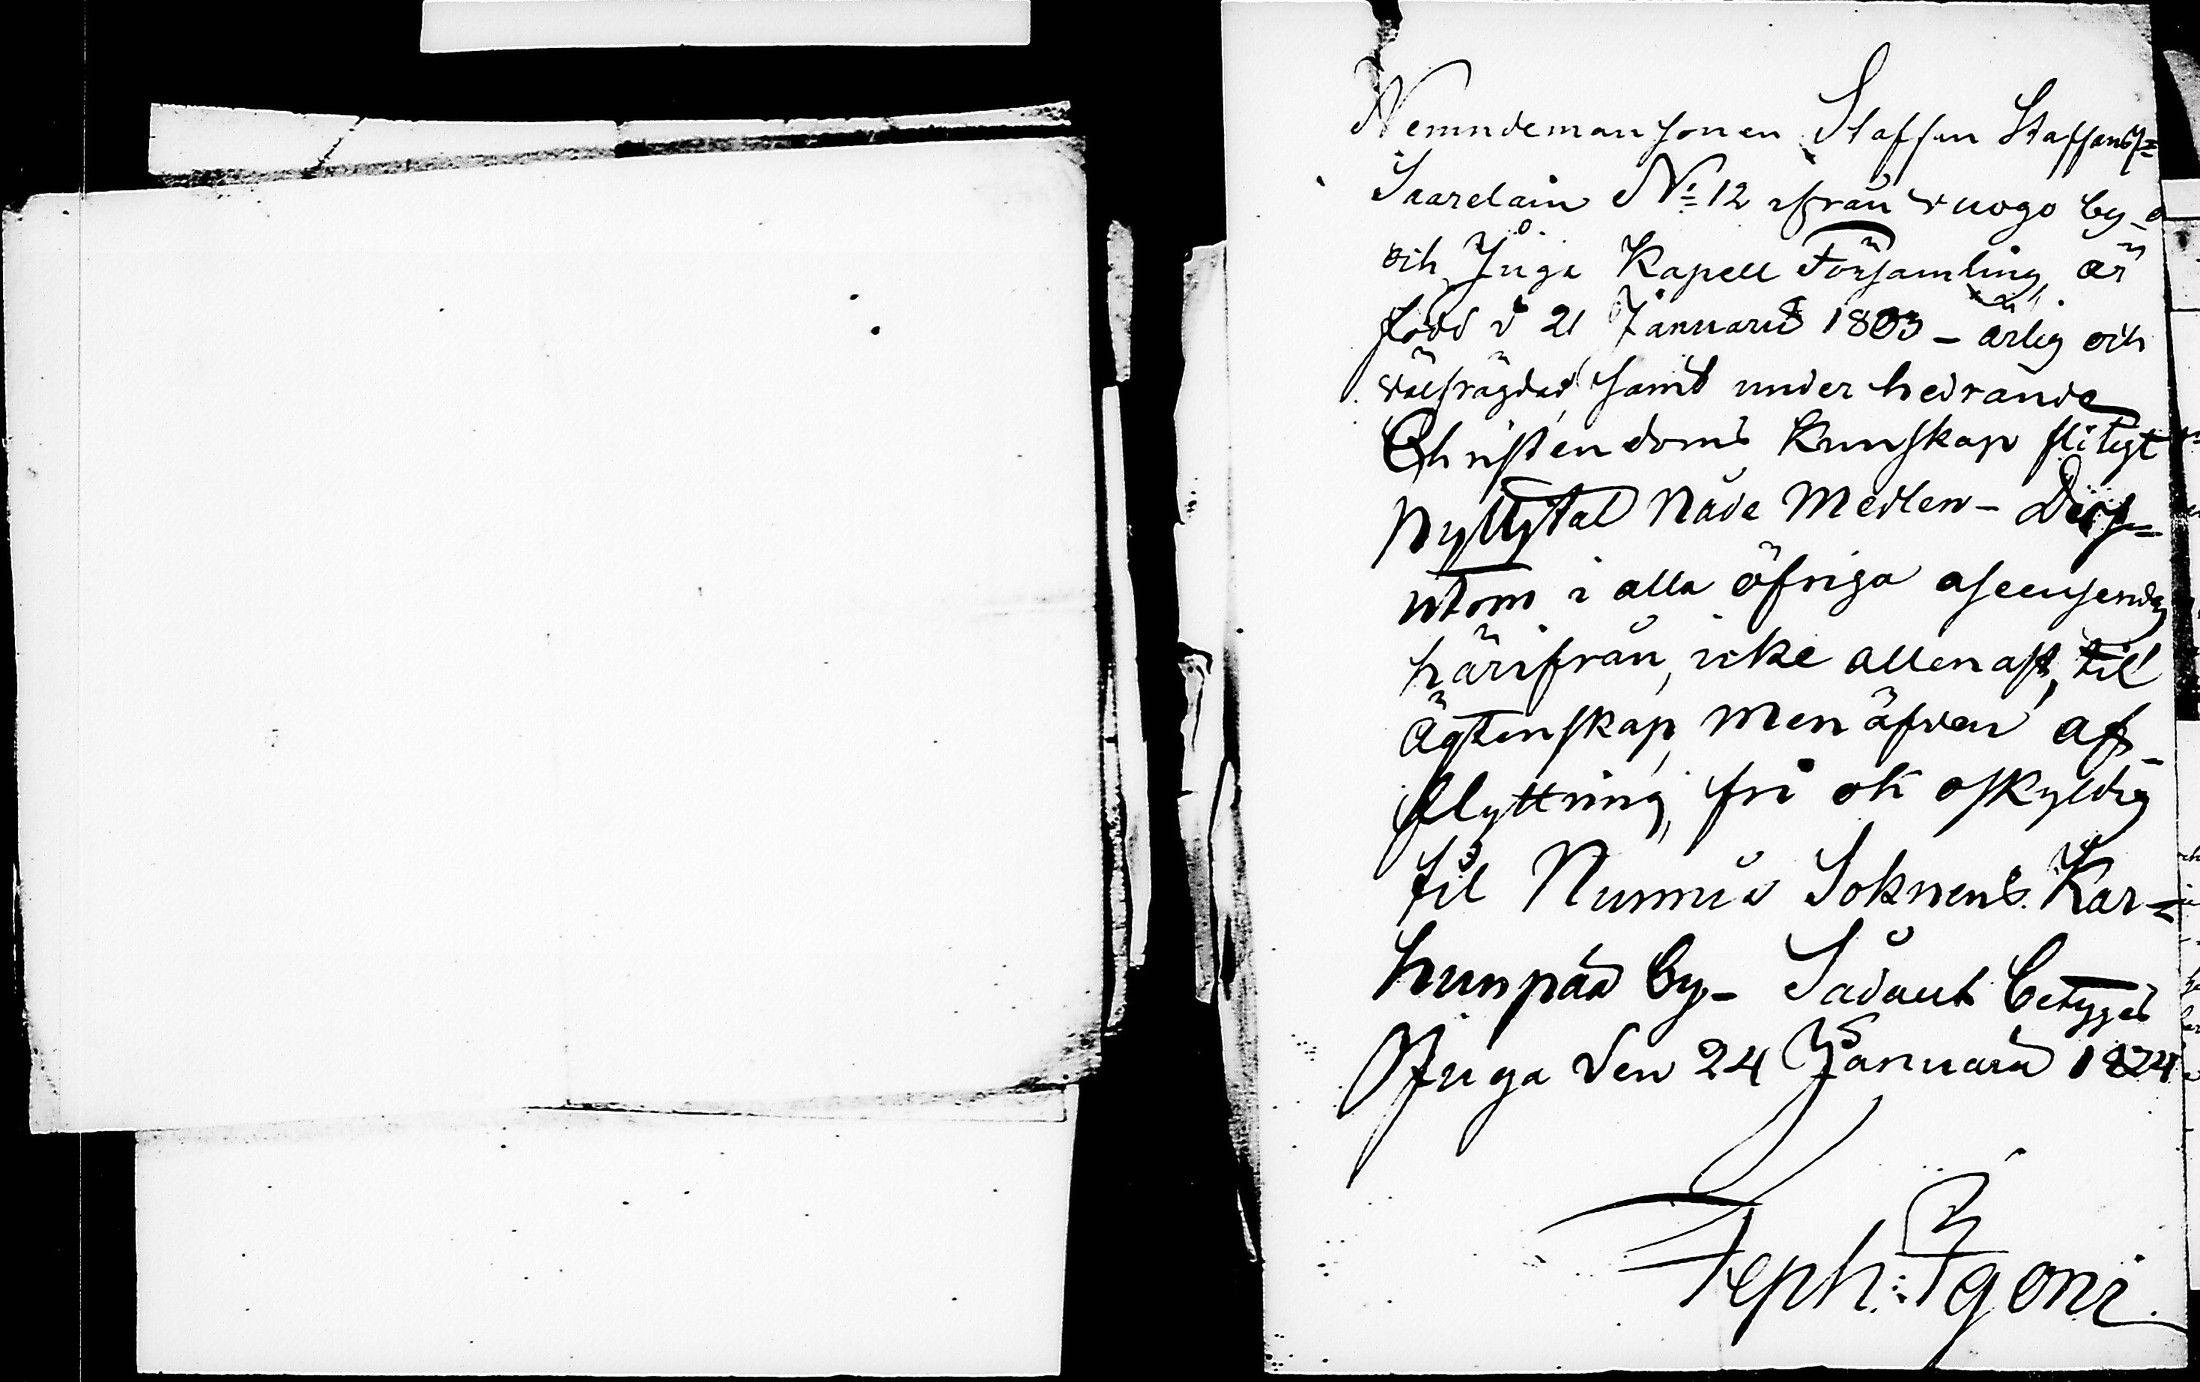 Nemndemansonen Staffan Staffans
Saarelain No 12 ifrån Vuogo by
och Juga Kapell Församling, är
född d 21 Januarii 1803 – ärlig och
välfrägdad samt under hedrande
Christendoms Kunskap flitigt
nyttgtat Nåde Medlen – Dess=
utom i alla öfriga afeenfenden
härifrån, icke allenast, til
ägtenskap, men äfven af-
flyttning, fri och oskyldig
til Nurmis Soknens Kar=
hunpää by – Sådant betyges
Juga den 24 Januarii 1824